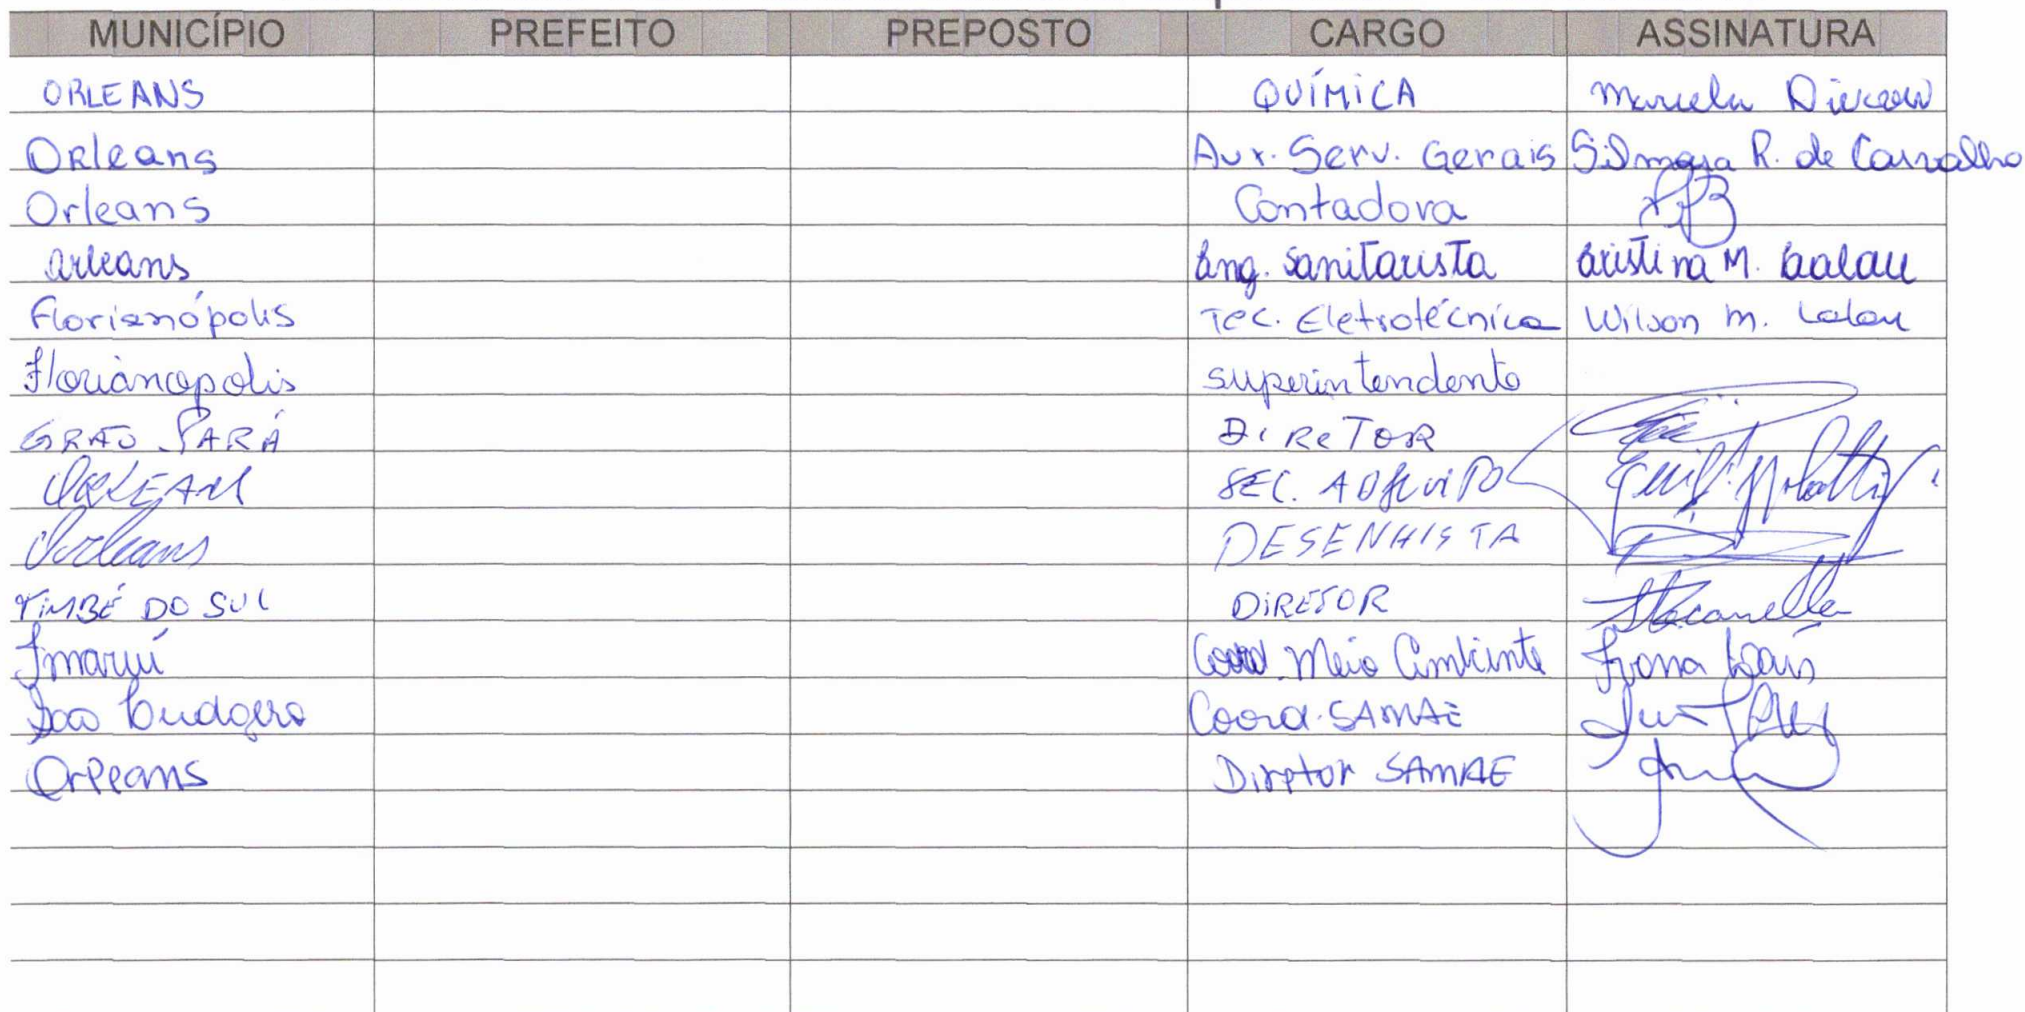 MUNICÍPIO PREFEITO PREPOSTO CARGO ASSINATURA
ORLEANS QUÍMICA
Orleans Aux. Serv. Gerais Silmara R. de Carvalho
Orleans Contadora
Orleans Eng. Sanitarista Cristina M.
Florianópolis Tec. Eletrotécnica Wilson M.
Florianopolis superintendente
GRÃO PARÁ DIRETOR
ORLEANS SEC. ADJUNTO
Orleans DESENHISTA
TIMBÉ DO SUL DIRETOR
Imaruí Coord. Meio Ambiente
Sao Ludgero Coord. SAMAE
Orleans Diretor SAMAE